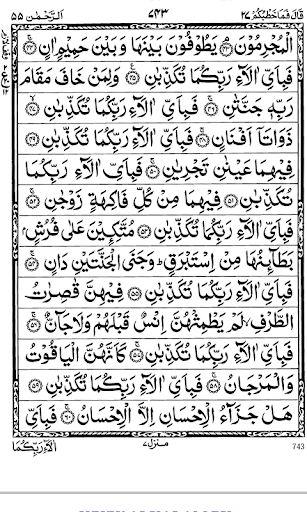 قَالَ فَمَا خَطْبُكُمْ ٢٧ ٧٤٣ اَلرَّحْمٰن ٥٥
الْمُجْرِمُوْنَ ﴿٤٣﴾ يَطُوْفُوْنَ بَيْنَهَا وَبَيْنَ حَمِيْمٍ اٰنٍ ﴿٤٤﴾
فَبِاَيِّ اٰلَآءِ رَبِّكُمَا تُكَذِّبٰنِ ﴿٤٥﴾ وَلِمَنْ خَافَ مَقَامَ
رَبِّهٖ جَنَّتٰنِ ﴿٤٦﴾ فَبِاَيِّ اٰلَآءِ رَبِّكُمَا تُكَذِّبٰنِ ﴿٤٧﴾
ذَوَاتَآ اَفْنَانٍ ﴿٤٨﴾ فَبِاَيِّ اٰلَآءِ رَبِّكُمَا تُكَذِّبٰنِ ﴿٤٩﴾
فِيْهِمَا عَيْنٰنِ تَجْرِيٰنِ ﴿٥٠﴾ فَبِاَيِّ اٰلَآءِ رَبِّكُمَا
تُكَذِّبٰنِ ﴿٥١﴾ فِيْهِمَا مِنْ كُلِّ فَاكِهَةٍ زَوْجٰنِ ﴿٥٢﴾
فَبِاَيِّ اٰلَآءِ رَبِّكُمَا تُكَذِّبٰنِ ﴿٥٣﴾ مُتَّكِـِٕيْنَ عَلٰى فُرُشٍۭ
بَطَآئِنُهَا مِنْ اِسْتَبْرَقٍ ؕ وَجَنَا الْجَنَّتَيْنِ دَانٍ ﴿٥٤﴾
فَبِاَيِّ اٰلَآءِ رَبِّكُمَا تُكَذِّبٰنِ ﴿٥٥﴾ فِيْهِنَّ قٰصِرٰتُ
الطَّرْفِ ۙ لَمْ يَطْمِثْهُنَّ اِنْسٌ قَبْلَهُمْ وَلَا جَآنٌّ ﴿٥٦﴾
فَبِاَيِّ اٰلَآءِ رَبِّكُمَا تُكَذِّبٰنِ ﴿٥٧﴾ كَاَنَّهُنَّ الْيَاقُوْتُ
وَالْمَرْجَانُ ﴿٥٨﴾ فَبِاَيِّ اٰلَآءِ رَبِّكُمَا تُكَذِّبٰنِ ﴿٥٩﴾
هَلْ جَزَآءُ الْاِحْسَانِ اِلَّا الْاِحْسَانُ ﴿٦٠﴾ فَبِاَيِّ
اٰلَآءِ رَبِّكُمَا منزل ٧ 743